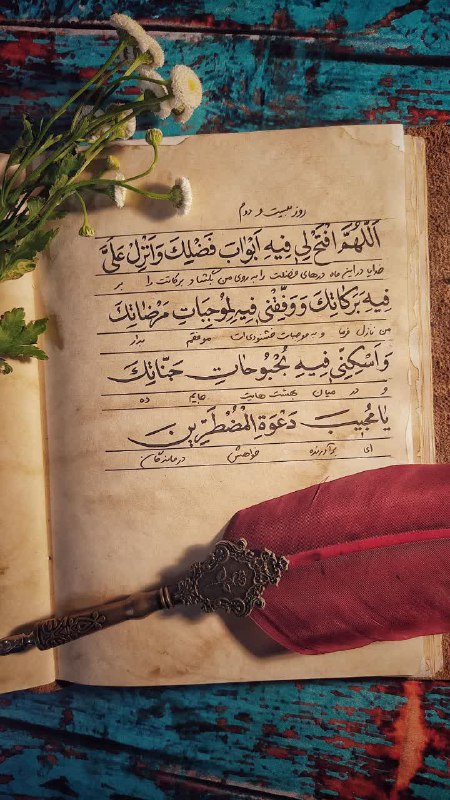 روز بیست و دوم
اَللّهُمَّ افْتَحْ لی فیهِ اَبْوابَ فَضْلِكَ وَاَنْزِلْ عَلَیَّ
خدایا در این ماه درهای فضیلت را به روی من بگشا و برکاتت را بر
فیهِ بَرَکاتِكَ وَ وَفِّقْنی فیهِ لِمُوجِباتِ مَرْضاتِكَ
من نازل فرما و به موجبات خشنودی‌ات موفقم بدار
وَاَسْکِنّی فیهِ بُحْبُوحاتِ جَنّاتِكَ
و در میان بهشت هایت جایم ده
یا مُجیبَ دَعْوَةِ الْمُضْطَرّینَ
ای برآورنده خواهش درماندگان